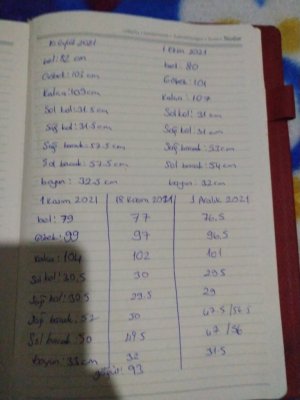 10 Eylül 2021 1 Ekim 2021
bel: 82 cm bel: 80
Göbek: 103 cm Göbek: 101
Kalça: 109 cm Kalça: 107
Sol kol: 31.5 cm Sol kol: 31 cm
Sağ kol: 31.5 cm Sağ kol: 31 cm
Sağ bacak: 57.5 cm Sağ bacak: 53 cm
Sol bacak: 57.5 cm Sol bacak: 54 cm
boyun: 32.5 cm boyun: 32 cm
1 Kasım 2021 18 Kasım 2021 1 Aralık 2021
bel: 79 77 76.5
Göbek: 99 97 96.5
Kalça: 104 102 101
Sol kol: 30.5 30 29.5
Sağ kol: 30.5 29.5 29
Sağ bacak: 52 50 47.5 / 56.5
Sol bacak: 50 49.5 47 / 56
boyun: 33 cm 32 31.5
göğüs: 93